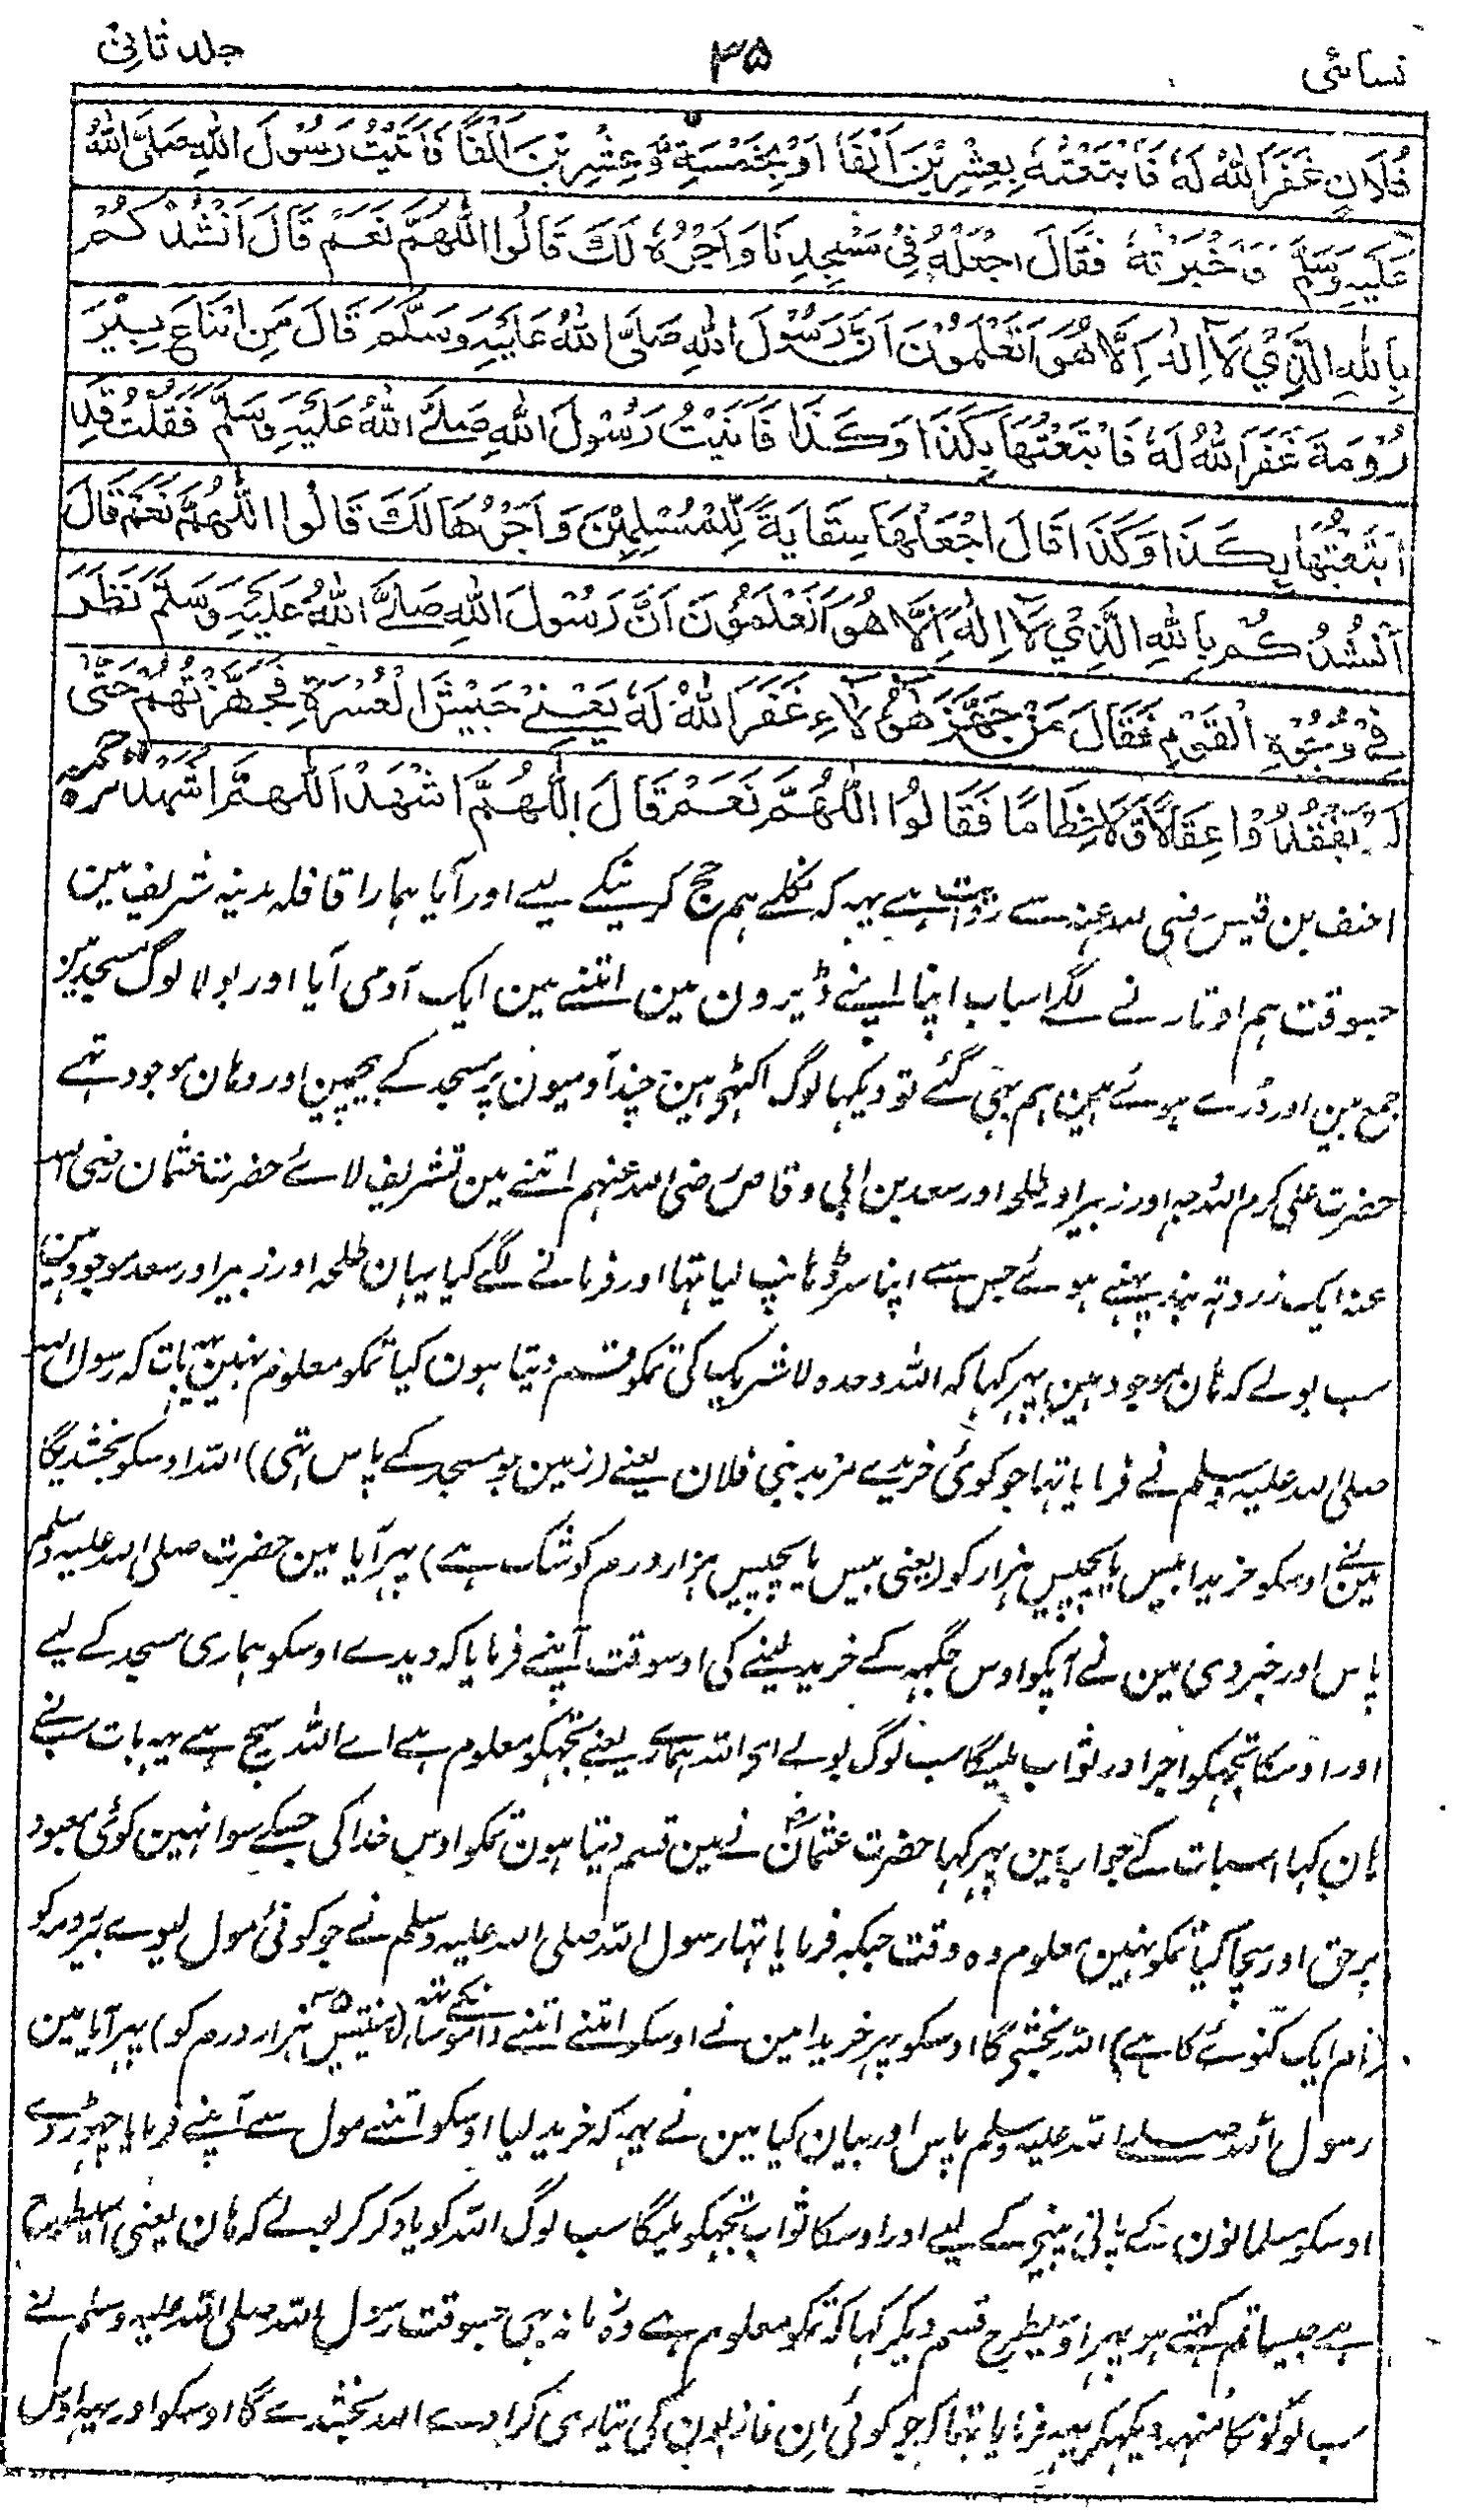 نسائی ۳۵ جلد ثانی
فُلَانٍ غَفَرَ اللهُ لَهٗ فَابْتَعْتُهٗ بِعِشْرِيْنَ اَلْفًا اَوْ بِخَمْسَةٍ وَّعِشْرِيْنَ اَلْفًا فَاَتَيْتُ رَسُوْلَ اللهِ صَلَّى اللهُ
عَلَيْهِ وَسَلَّمَ فَاَخْبَرْتُهٗ فَقَالَ اجْعَلْهُ فِيْ مَسْجِدِنَا وَاَجْرُهٗ لَكَ قَالُوا اللّٰهُمَّ نَعَمْ قَالَ اَنْشُدُكُمْ
بِاللهِ الَّذِيْ لَآ اِلٰهَ اِلَّا هُوَ اَتَعْلَمُوْنَ اَنَّ رَسُوْلَ اللهِ صَلَّى اللهُ عَلَيْهِ وَسَلَّمَ قَالَ مَنِ ابْتَاعَ بِيْرَ
رُوْمَةَ غَفَرَ اللهُ لَهٗ فَابْتَعْتُهَا بِكَذَا وَكَذَا فَاَتَيْتُ رَسُوْلَ اللهِ صَلَّے اللهُ عَلَيْهِ وَسَلَّمَ فَقُلْتُ قَدِ
ابْتَعْتُهَا بِكَذَا وَكَذَا قَالَ اجْعَلْهَا سِقَايَةً لِّلْمُسْلِمِيْنَ وَاَجْرُهَا لَكَ قَالُوا اللّٰهُمَّ نَعَمْ قَالَ
اَنْشُدُكُمْ بِاللهِ الَّذِيْ لَآ اِلٰهَ اِلَّا هُوَ اَتَعْلَمُوْنَ اَنَّ رَسُوْلَ اللهِ صَلَّے اللهُ عَلَيْهِ وَسَلَّمَ نَظَرَ
فِيْ وُجُوْهِ الْقَوْمِ فَقَالَ مَنْ جَهَّزَ هٰؤُلَآءِ غَفَرَ اللهُ لَهٗ يَعْنِيْ جَيْشَ الْعُسْرَةِ فَجَهَّزْتُهُمْ حَتّٰى
لَمْ يَفْقِدُوْا عِقَالًا وَّلَا خِطَامًا فَقَالُوا اللّٰهُمَّ نَعَمْ قَالَ اللّٰهُمَّ اشْهَدْ اَللّٰهُمَّ اشْهَدْ ترجمہ
احنف بن قیس رضی اللہ عنہ سے روایت ہے یہہ کہ نکلے ہم حج کرنیکے لیے اور آیا ہمارا قافلہ مدینہ شریف مین
جسوقت ہم اوتارنے لگے اسباب اپنا اپنے ڈیرون مین اتنے مین ایک آدمی آیا اور بولا لوگ مسجد مین
جمع ہین اور ڈرے ہوئے ہین ہم بہی گئے تو دیکہا لوگ اکٹہے ہین چند آدمیون پر مسجد کے بیچمین اور وہان موجود تہے
حضرت علی کرم اللہ وجہہ اور زبیر اور طلحہ اور سعد بن ابی وقاص رضی اللہ عنہم اتنے مین تشریف لائے حضرت عثمان رضی اللہ
عنہ ایک زرد تہ بند پہنے ہوئے جس سے اپنا سر ڈہانپ لیا تہا اور فرمانے لگے کیا یہان طلحہ اور زبیر اور سعد موجود ہین
سب بولے کہ ہان موجود ہین پہر کہا کہ اللہ وحدہ لا شریک کی تمکو قسم دیتا ہون کیا تمکو معلوم نہین یہ بات کہ رسول اللہ
صلی اللہ علیہ وسلم نے فرمایا تہا جو کوئی خریدے مربد بنی فلان یعنے (زمین جو مسجد کے پاس تہی) اللہ اوسکو بخشدیگا
مینے اوسکو خریدا بیس یا پچیس ہزار کو (یعنی بیس یا پچیس ہزار درم کو شک ہے) پہر آیا مین حضرت صلی اللہ علیہ وسلم
پاس اور خبر دی مین نے آپکو اوس جگہہ کے خرید لینے کی اوسوقت آپنے فرمایا کہ دیدے اوسکو ہماری مسجد کے لیے
اور اوسکا تجہکو اجر اور ثواب ملیگا سب لوگ بولے اے اللہ ہمارے یعنے تجہکو معلوم ہے اے اللہ سچ ہے یہہ بات سبنے
ہان کہا اسبات کے جواب مین پہر کہا حضرت عثمانؓ نے مین قسم دیتا ہون تمکو اوس خدا کی جسکے سوا نہین کوئی معبود
برحق اور سچا کیا تمکو نہین معلوم وہ وقت جبکہ فرمایا تہا رسول اللہ صلی اللہ علیہ وسلم نے جو کوئی مول لیوے بیر رومہ کو
(نام ایک کنوئے کا ہے) اللہ بخشیگا اوسکو پہر خریدا مین نے اوسکو اتنے اتنے دامون کے ساتہ (پینتیس ۳۵ ہزار درم کو) پہر آیا مین
رسول اللہ صلے اللہ علیہ وسلم پاس اور بیان کیا مین نے یہہ کہ خرید لیا اوسکو اتنے مول سے آپنے فرمایا چہوڑ دے
اوسکو مسلمانون کے پانی پینے کے لیے اور اوسکا ثواب تجہکو ملیگا سب لوگ اللہ کو یاد کر کر بولے کہ ہان یعنی اسیطرح
ہے جیسا تم کہتے ہو پہر اوسیطرح قسم دیکر کہا کہ تمکو معلوم ہے وہ زمانہ بہی جسوقت رسول اللہ صلی اللہ علیہ وسلم نے
سب لوگونکا منہہ دیکہکر یہہ فرمایا تہا کہ جو کوئی ان غازیون کی تیاری کرا دے اللہ بخشدے گا اوسکو اور یہہ اوس